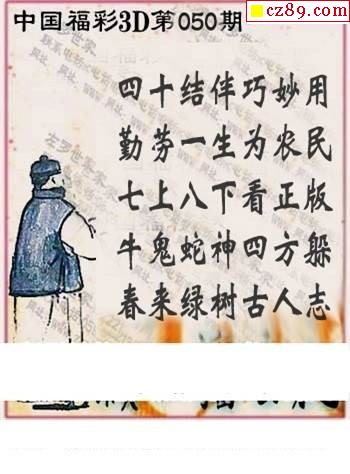 cz89.com
中国福彩3D第050期
四十结伴巧妙用
勤劳一生为农民
七上八下看正版
牛鬼蛇神四方躲
春来绿树古人志